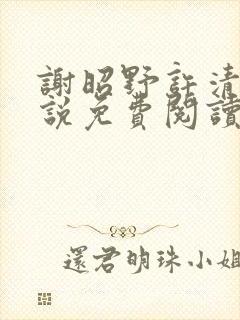 謝昭野許清
說免費閱讀
還君明珠小姐